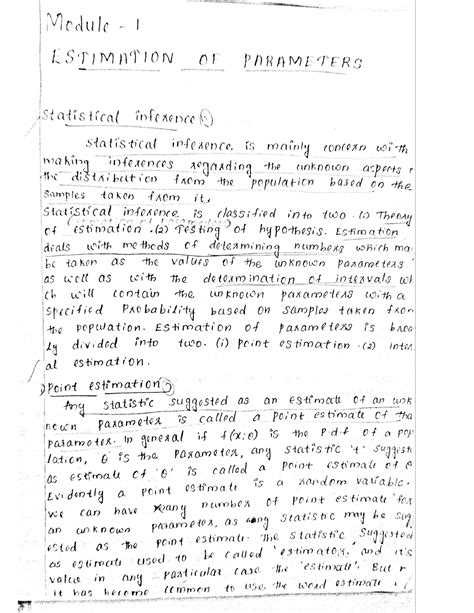 Module - 1
ESTIMATION OF PARAMETERS
Statistical inference
Statistical inference is mainly concern with
making inferences regarding the unknown aspects
the distribution from the population based on the
samples taken from it.
Statistical inference is classified into two (1) Theory
of estimation (2) Testing of hypothesis. Estimation
deals with methods of determining numbers which ma
be taken as the values of the unknown parameters
as well as with the determination of intervals wh
ch will contain the unknown parameters with a
specified Probability based on samples taken from
the population. Estimation of parameters is broa
ly divided into two. (i) point estimation (2) inter
al estimation.
Point estimation
Any statistic suggested as an estimate of an unk
nown parameter is called a point estimate of tha
parameter. In general if f(x;θ) is the P.d.f of a pop
lation, θ is the parameter, any statistic 't' suggest
as estimate of 'θ' is called a point estimate of θ
Evidently a point estimate is a random variable.
we can have any number of point estimate for
an unknown parameter, as any statistic may be sug
ested as the point estimate. The statistic suggested
as estimate used to be called 'estimator' and it's
value in any particular case the 'estimate'. But
it has become common to use the word estimate